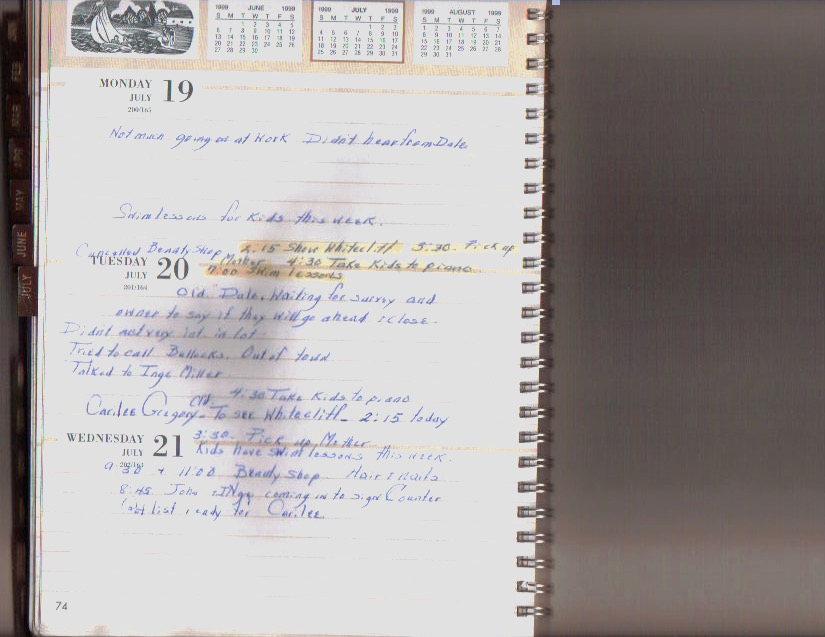 1999 JUNE 1999
S M T W T F S
1 2 3 4 5
6 7 8 9 10 11 12
13 14 15 16 17 18 19
20 21 22 23 24 25 26
27 28 29 30
1999 JULY 1999
S M T W T F S
1 2 3
4 5 6 7 8 9 10
11 12 13 14 15 16 17
18 19 20 21 22 23 24
25 26 27 28 29 30 31
1999 AUGUST 1999
S M T W T F S
1 2 3 4 5 6 7
8 9 10 11 12 13 14
15 16 17 18 19 20 21
22 23 24 25 26 27 28
29 30 31
FEB
MAR
APR
MAY
JUNE
JULY
MONDAY 19
JULY
200/165
Not much going on at work Didn't hear from Dale
Swim lessons for Kids this week.
Cancelled Beauty Shop 2:15 Show Whitecliff 3:30. Pick up
Mother 4:30 Take Kids to piano
7:00 Swim lessons
TUESDAY 20
JULY
201/164
Cld. Dale. Waiting for survey and
owner to say if they will go ahead & close.
Didn't act very int. in lot
Tried to call Bullocks. Out of town
Talked to Inge Miller
Cld. 4:30 Take Kids to piano
Carilee Gregory - To see Whitecliff - 2:15 today
3:30 - Pick up Mother
WEDNESDAY 21
JULY
202/163
Kids have swim lessons this week.
9:30 + 11:00 Beauty Shop - Hair & Nails
8:45 John & Inge coming in to sign Counter
list ready for Carilee
74